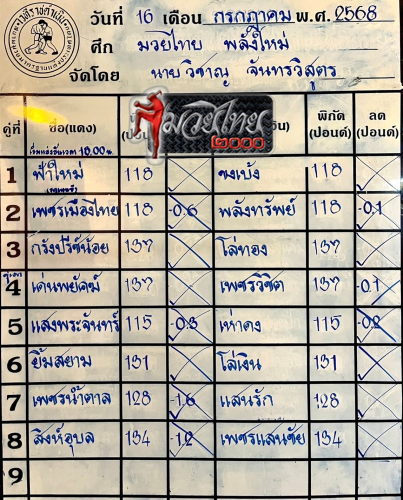 วันที่ 16 เดือน กรกฎาคม พ.ศ. 2568
ศึก มวยไทย พลังใหม่
จัดโดย นาย วิชาญ จันทรวิสูตร
มวยไทย
๒๐๐๐
คู่ที่ ชื่อ(แดง) พิกัด (ปอนด์) ลด (ปอนด์)
1 ฟ้าใหม่ 118 ชงเบ้ง 118
2 เพชรเมืองไทย 118 -0.6 พลังทรัพย์ 118 -0.1
3 กรังปรีซ์น้อย 137 โล่ทอง 137
4 เด่นพยัคฆ์ 137 เพชรวิชิต 137 -0.1
5 แสงพระจันทร์ 115 -0.3 เห่าดง 115 -0.2
6 ยิ้มสยาม 131 โล่เงิน 131
7 เพชรน้ำตาล 128 -1.6 แสนรัก 128
8 สิงห์อุบล 134 -1.2 เพชรแสนชัย 134
9